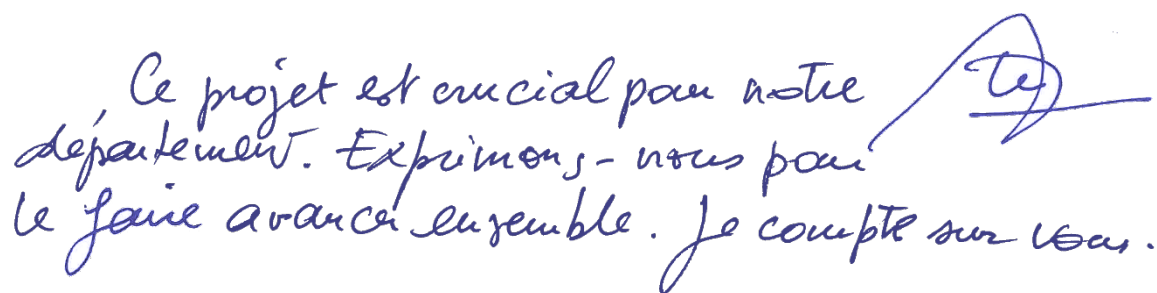 Ce projet est crucial pour notre
département. Exprimons-nous pour
le faire avancer ensemble. Je compte sur vous.